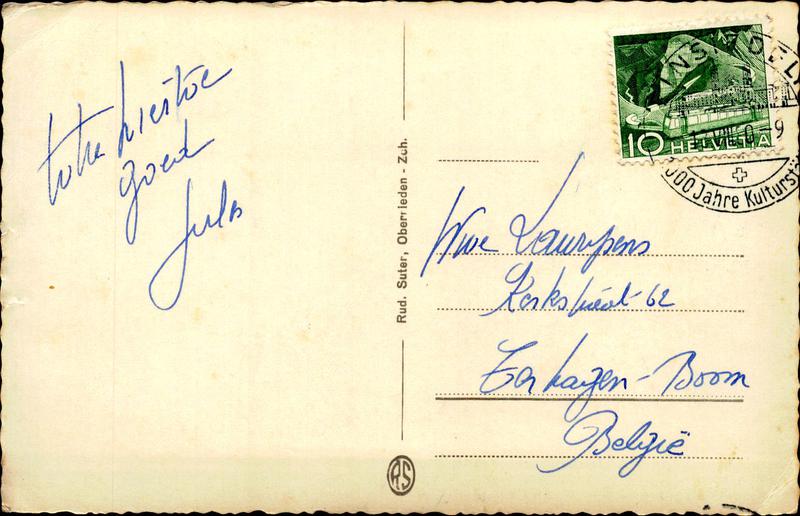 goed
Jules
Rud. Suter, Oberrieden - Zch.
RS
10 HELVETIA
EINSIEDELN
1000 Jahre Kulturstä
Wwe Laurijsens
Kerkstraat 62
Terhagen - Boom
België